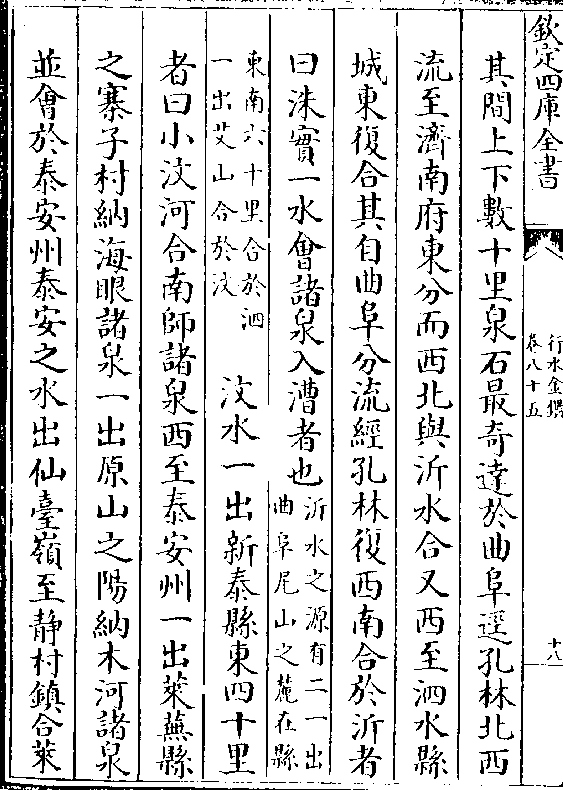 欽定四庫全書
行水金鑑
卷八十五
十八
其間上下數十里泉石最奇達於曲阜逕孔林北西
流至濟南府東分而西北與沂水合又西至泗水縣
城東復合其自曲阜分流經孔林復西南合於沂者
曰洙實一水會諸泉入漕者也沂水之源有二一出
曲阜尾山之麓在縣
東南六十里合於泗
一出艾山合於汶
汶水一出新泰縣東四十里
者曰小汶河合南師諸泉西至泰安州一出萊蕪縣
之寨子村納海眼諸泉一出原山之陽納木河諸泉
並會於泰安州泰安之水出仙臺嶺至静村鎮合萊